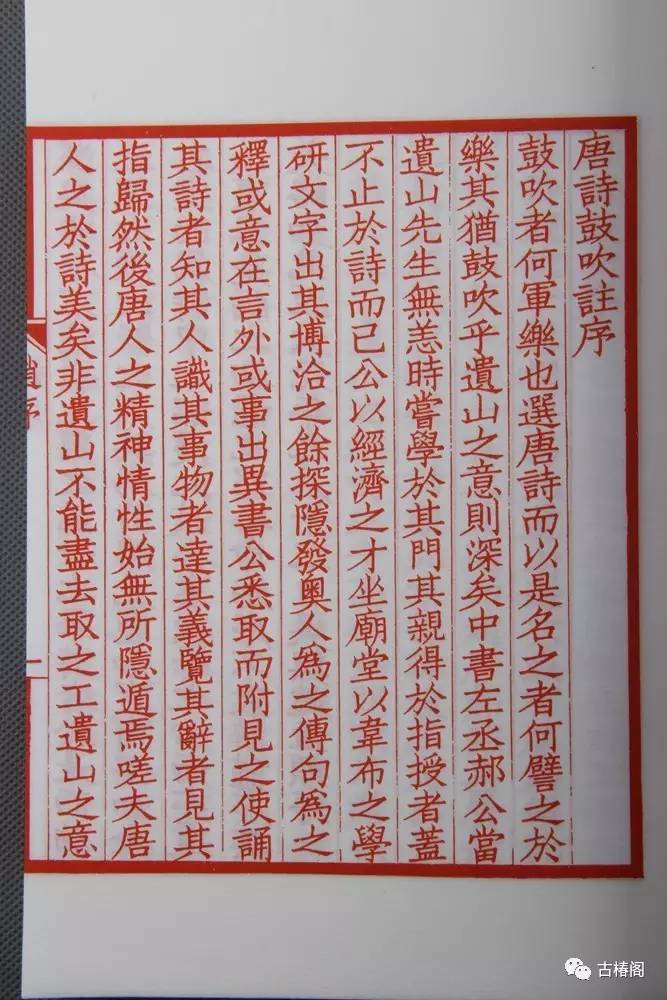 唐詩鼓吹註序
鼓吹者何軍樂也選唐詩而以是名之者何譬之於
樂其猶鼓吹乎遺山之意則深矣中書左丞郝公當
遺山先生無恙時嘗學於其門其親得於指授者蓋
不止於詩而已公以經濟之才坐廟堂以韋布之學
研文字出其博洽之餘探隱發奧人為之傳句為之
釋或意在言外或事出異書公悉取而附見之使誦
其詩者知其人識其事物者達其義覽其辭者見其
指歸然後唐人之精神情性始無所隱遁焉嗟夫唐
人之於詩美矣非遺山不能盡去取之工遺山之意
序
古椿阁